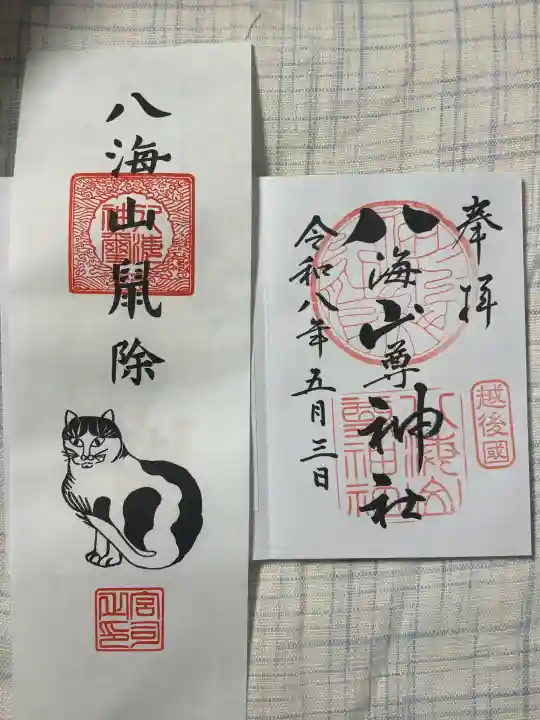 奉拝
越後國
八海山尊神社
令和八年五月三日
八海山鼠除
宮司之印